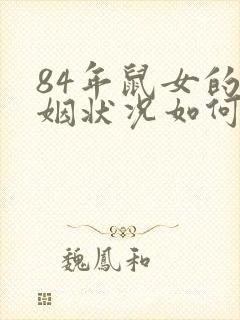 84年鼠女的
姻状况如何
魏鳳和